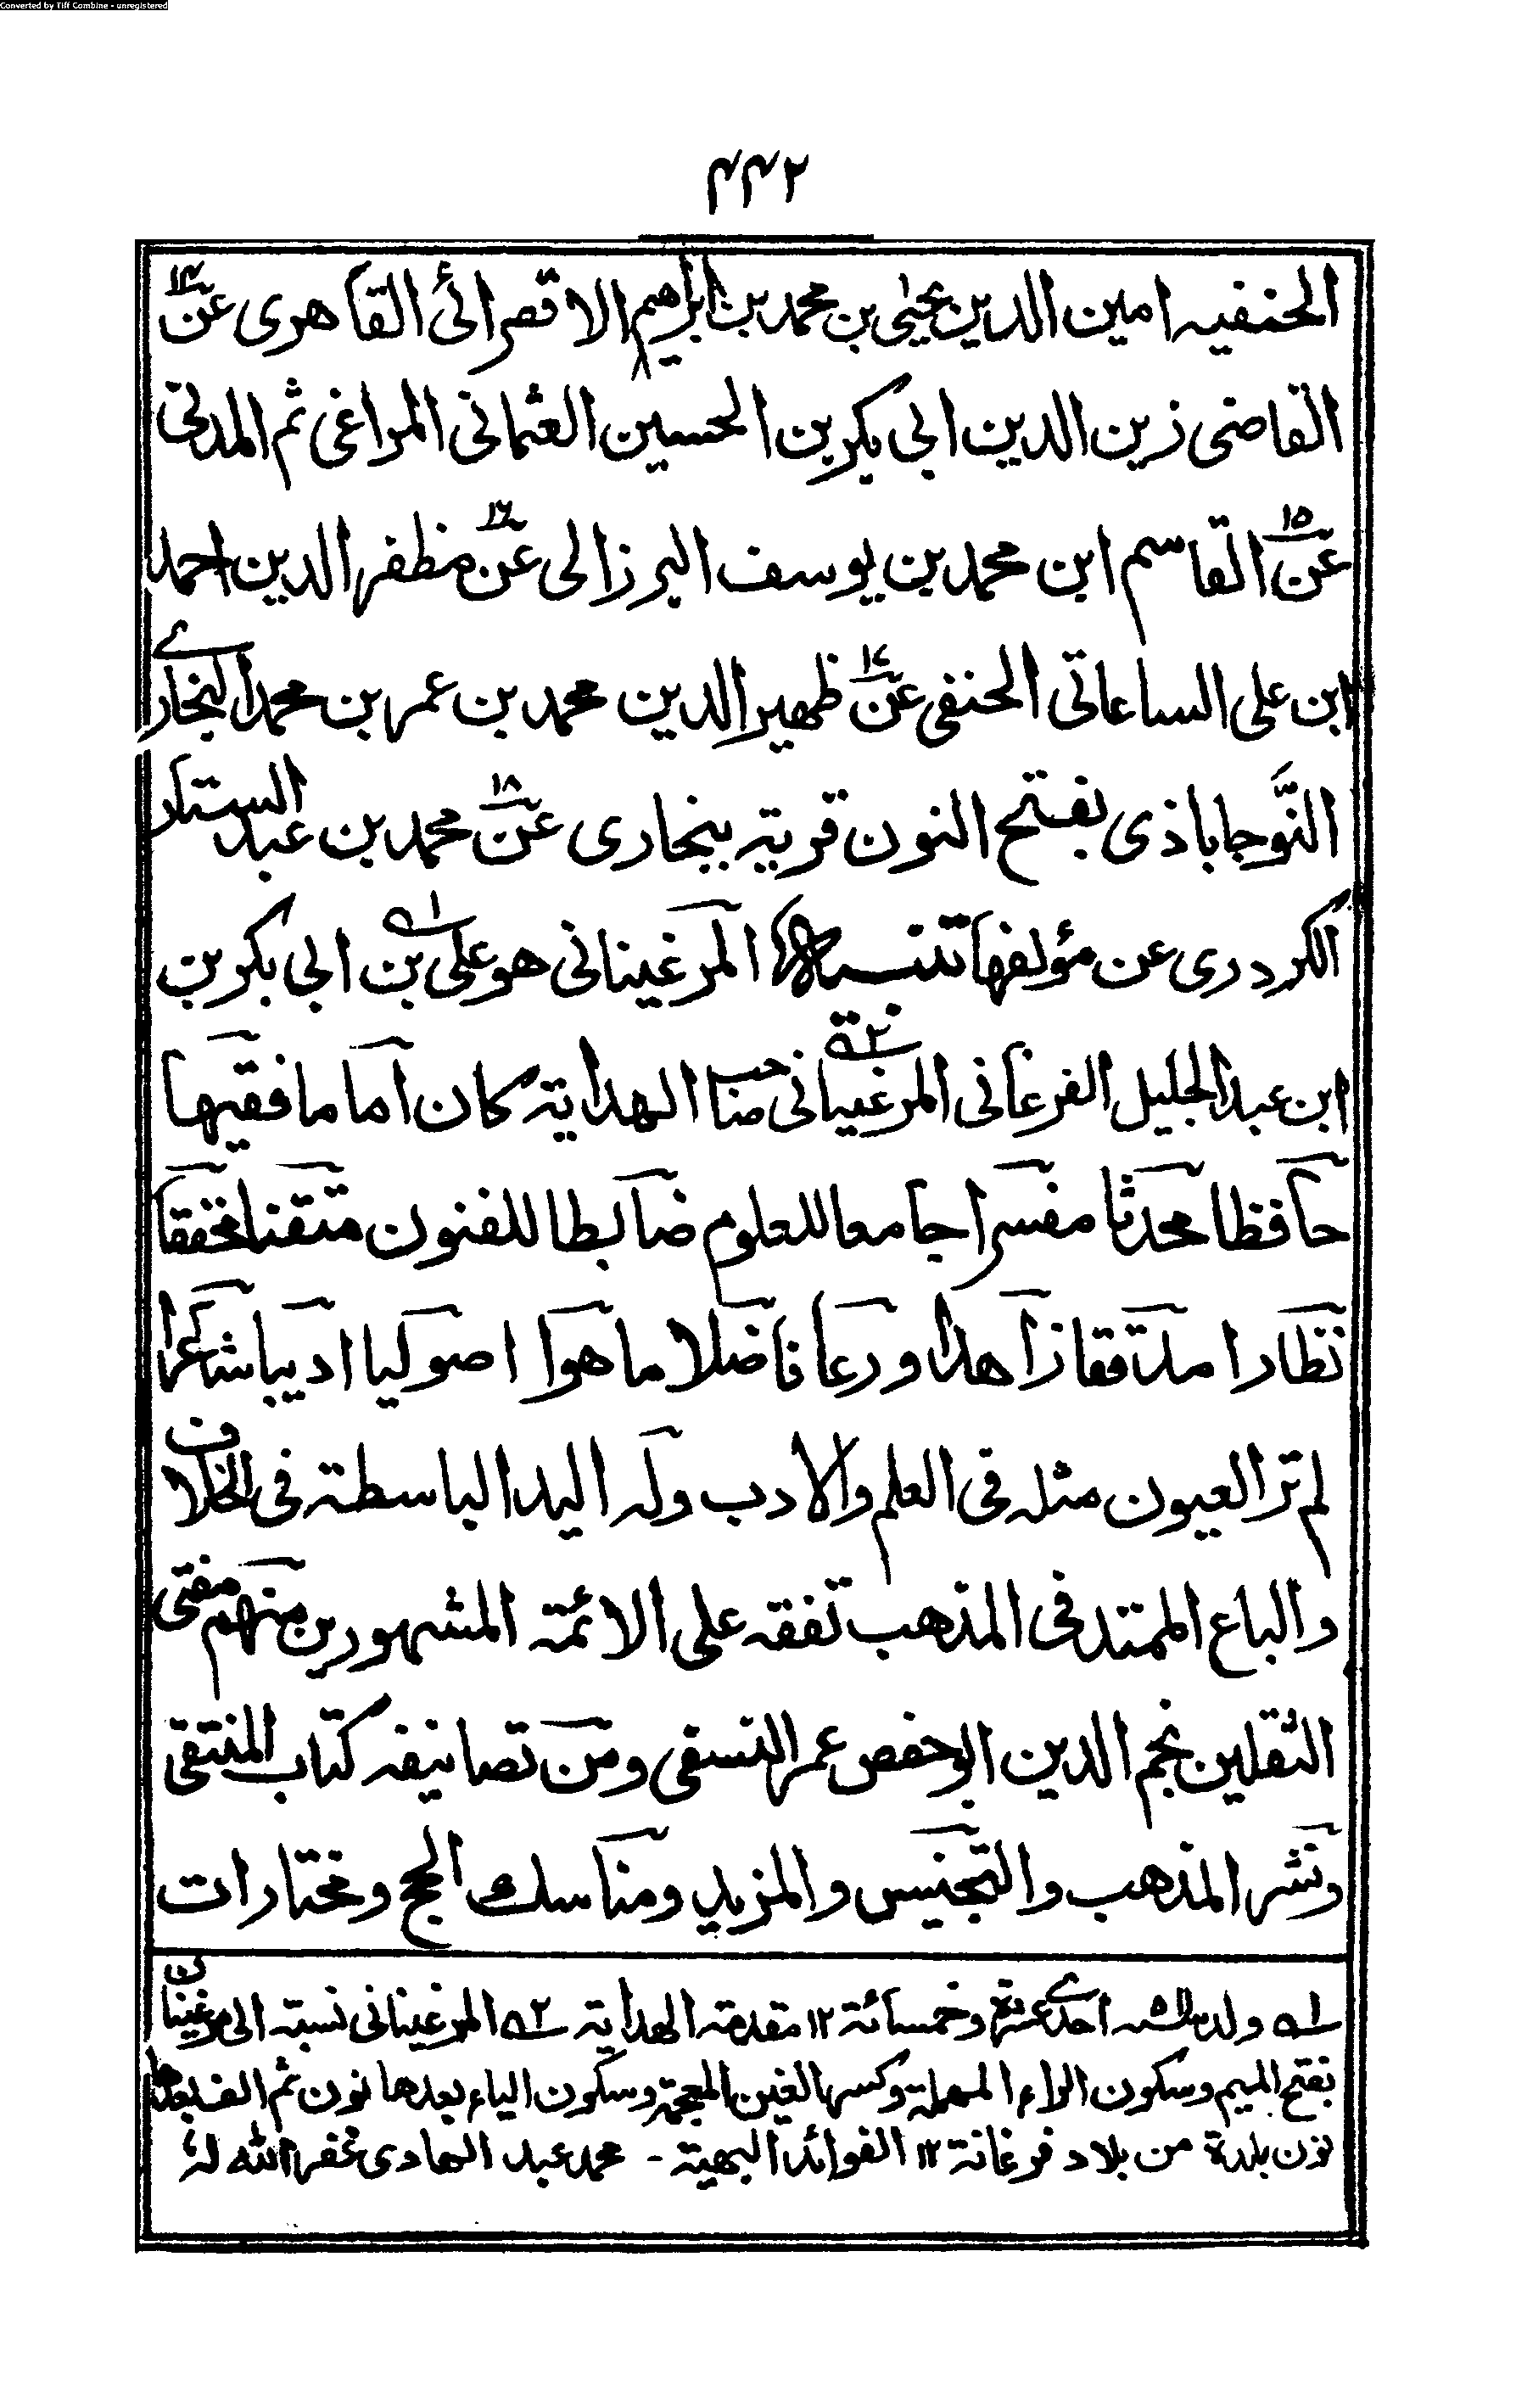 Converted by Tiff Combine - unregistered
۴۴۲
الحنفیه امین الدین یحیٰی بن محمد بن ابراهیم الاقصرائی القاهری عن ۱۴
القاضی زین الدین ابی بکر بن الحسین العثمانی المراغی ثم المدنی
عن ۱۵ القاسم ابن محمد بن یوسف البرزالی عن ۱۶ مظفر الدین احمد
ابن علی الساعاتی الحنفی عن ۱۷ ظهیر الدین محمد بن عمر بن محمد البخاری
النَّوجاباذی بفتح النون قریة ببخاری عن ۱۸ محمد بن عبد الستار
الکردری عن مؤلفها تنبیه المرغینانی هو علی ۱ بن ابی بکر بن
ابن عبد الجلیل الفرغانی المرغینانی ۲ صاحب الهدایة کان اماما فقیها
حافظا محدثا مفسرا جامعا للعلوم ضابطا للفنون متقنا محققا
نظارا مدققا زاهدا ورعا فاضلا ماهرا اصولیا ادیبا شاعرا
لم تر العیون مثله فی العلم والادب وله الید الباسطة فی الخلاف
والباع الممتد فی المذهب تفقه علی الائمة المشهورین منهم مفتی
الثقلین نجم الدین ابو حفص عمر النسفی ومن تصانیفه کتاب المنتقی
ونشر المذهب والتجنیس والمزید ومناسك الحج ومختارات
۱ ولد سنة احدی عشرة وخمسمائة ۱۲ مقدمة الهدایة ۲ المرغینانی نسبة الی مرغینان
بفتح المیم وسکون الراء المهملة وکسر الغین المعجمة وسکون الیاء بعدها نون ثم الف بعدها
نون بلدة من بلاد فرغانة ۱۲ الفوائد البهیة - محمد عبد الهادی غفر الله له